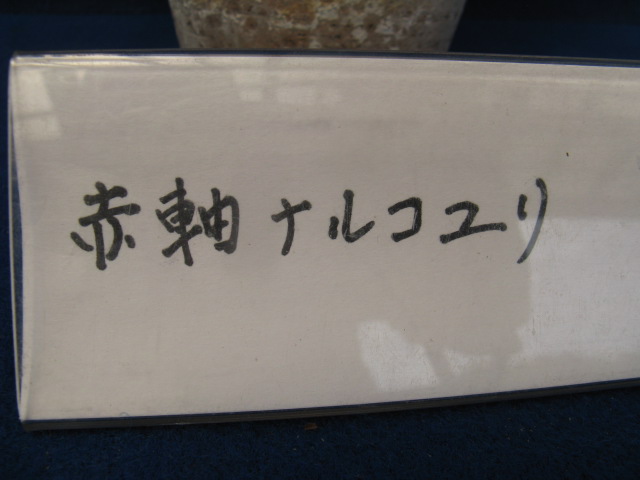 赤軸ナルコユリ